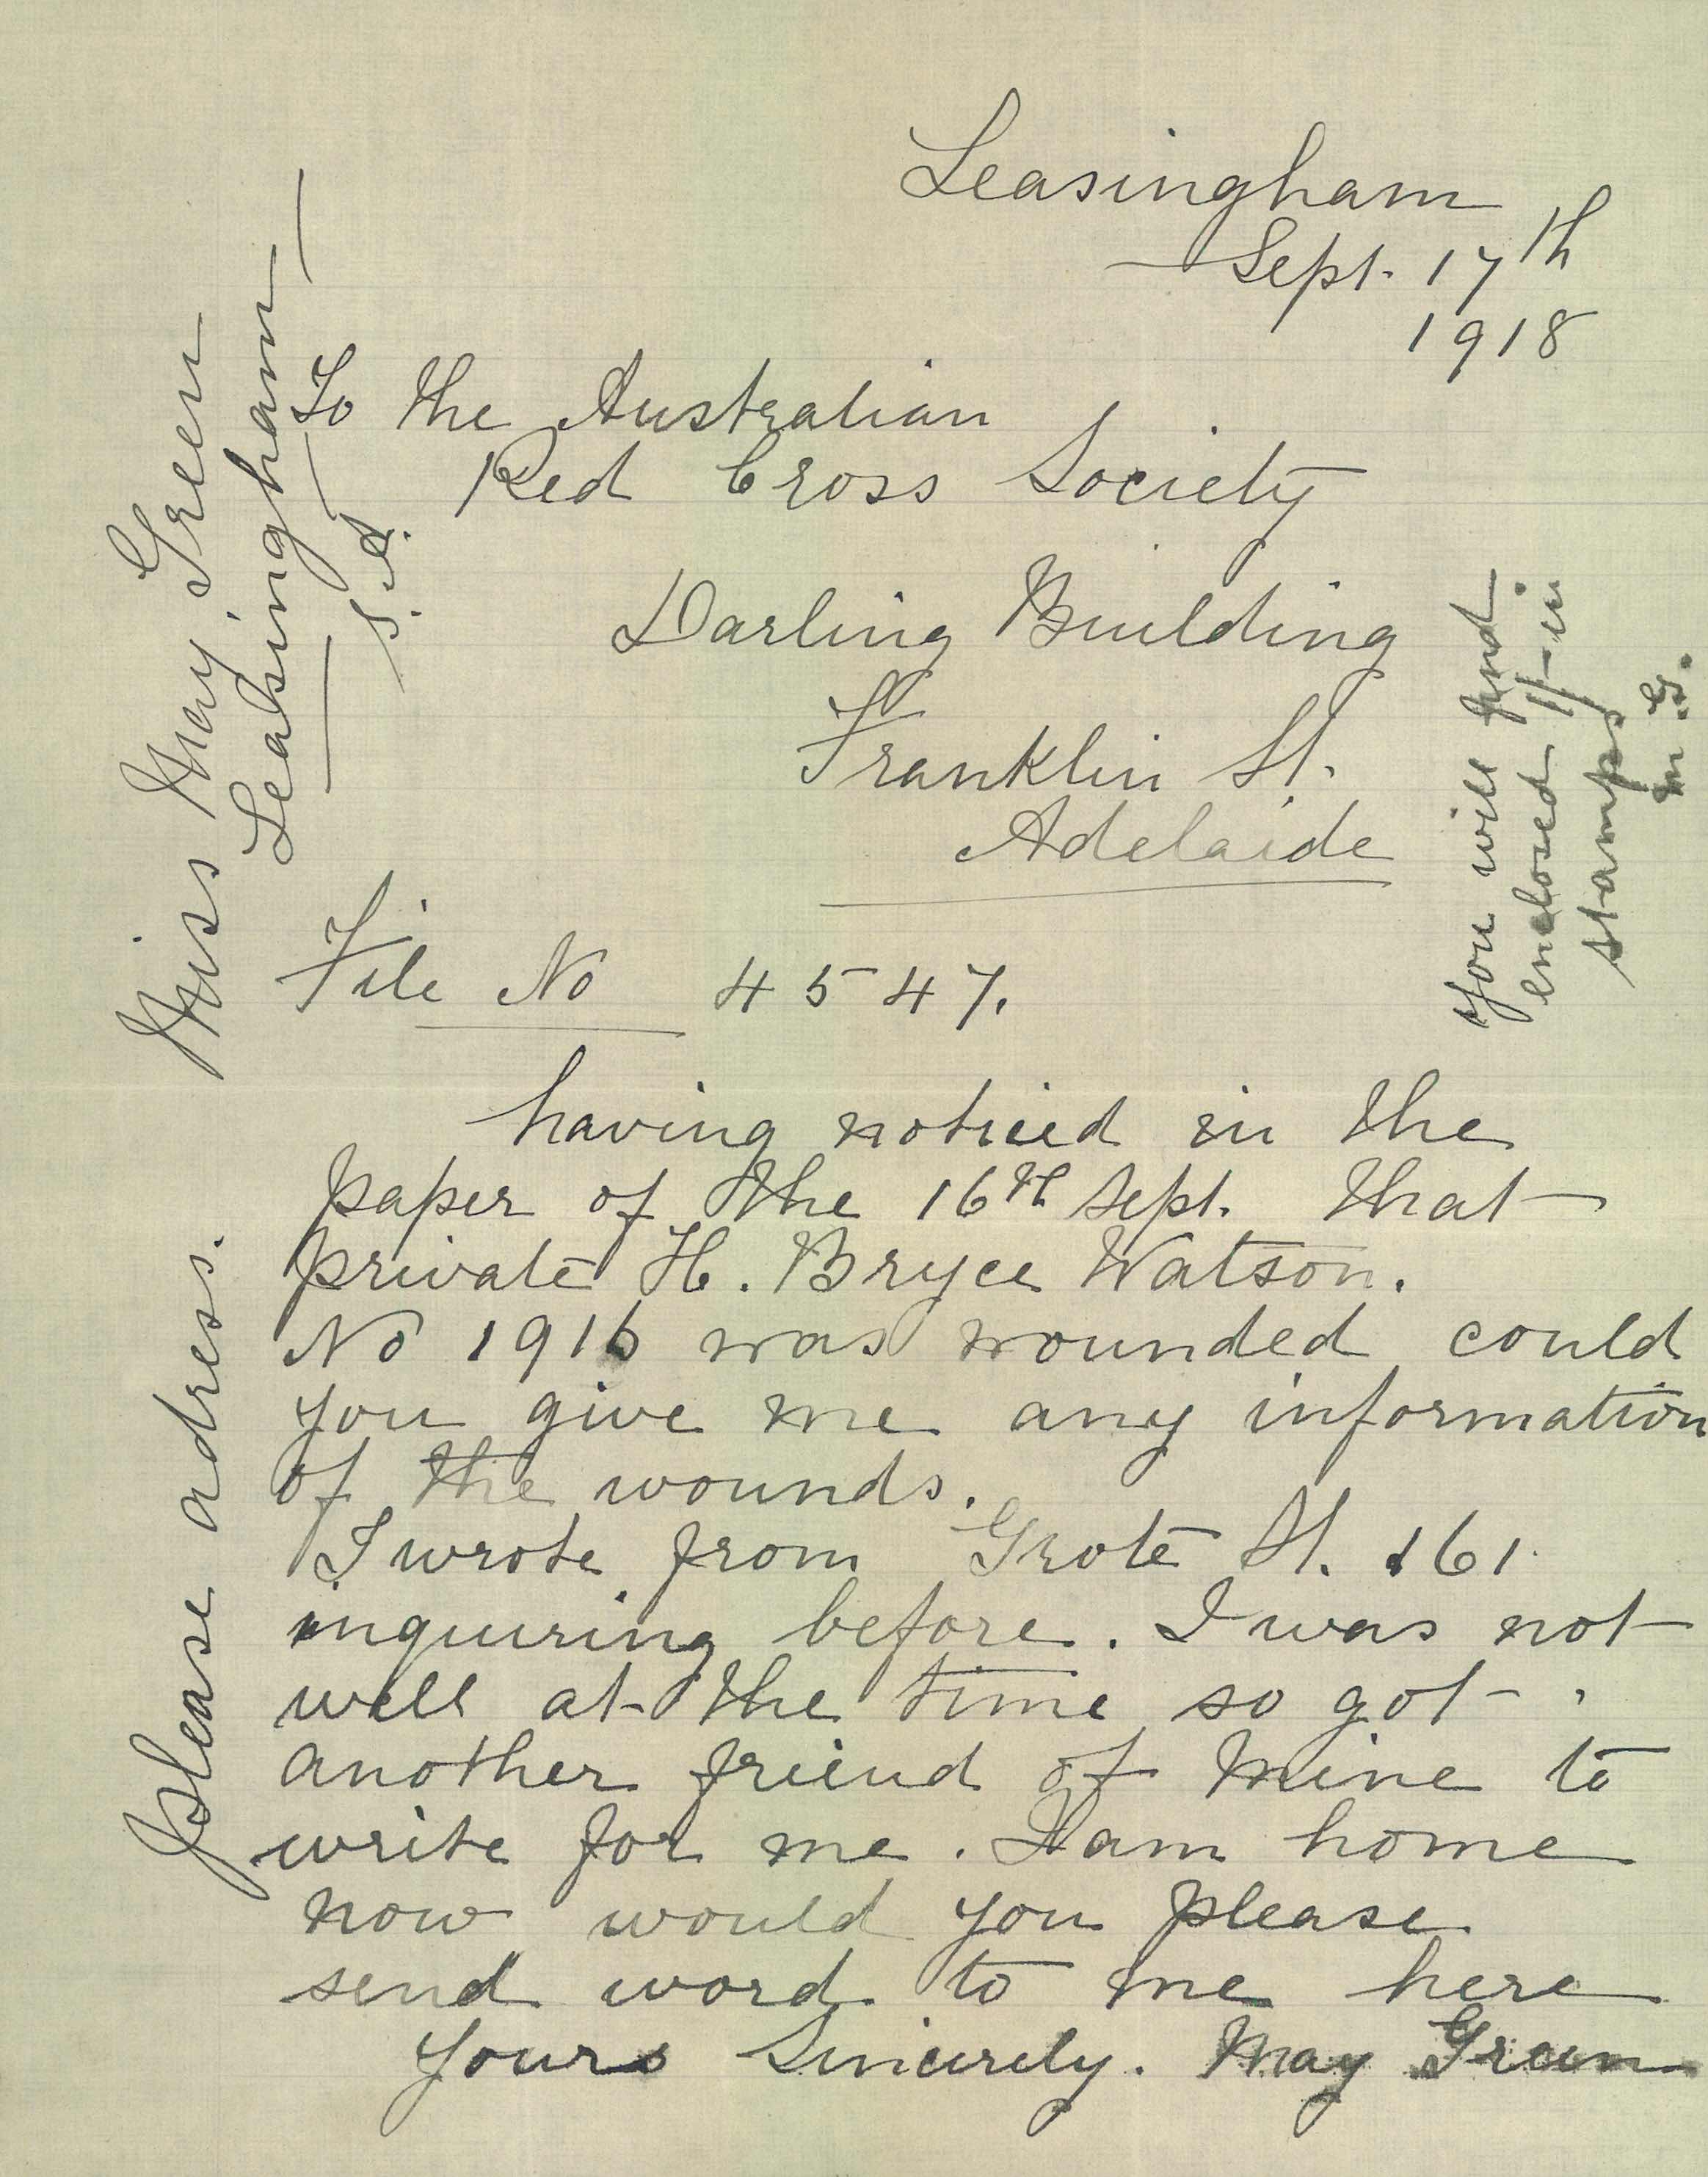 Leasingham
Sept. 17th
1918
To the Australian
Red Cross Society
Darling Building
Franklin St.
Adelaide
File No 4547.
having noticed in the
paper of the 16th Sept. that
private H. Bryce Watson.
No 1916 was wounded could
you give me any information
of the wounds.
I wrote from Grote St. 161
inquiring before. I was not
well at the time so got
another friend of mine to
write for me. I am home
now would you please
send word to me here
Yours Sincerely. May Green
Please adress.
Miss May Green
Leasingham
S.A.
You will find
enclosed 1/- in
stamps
M.G.